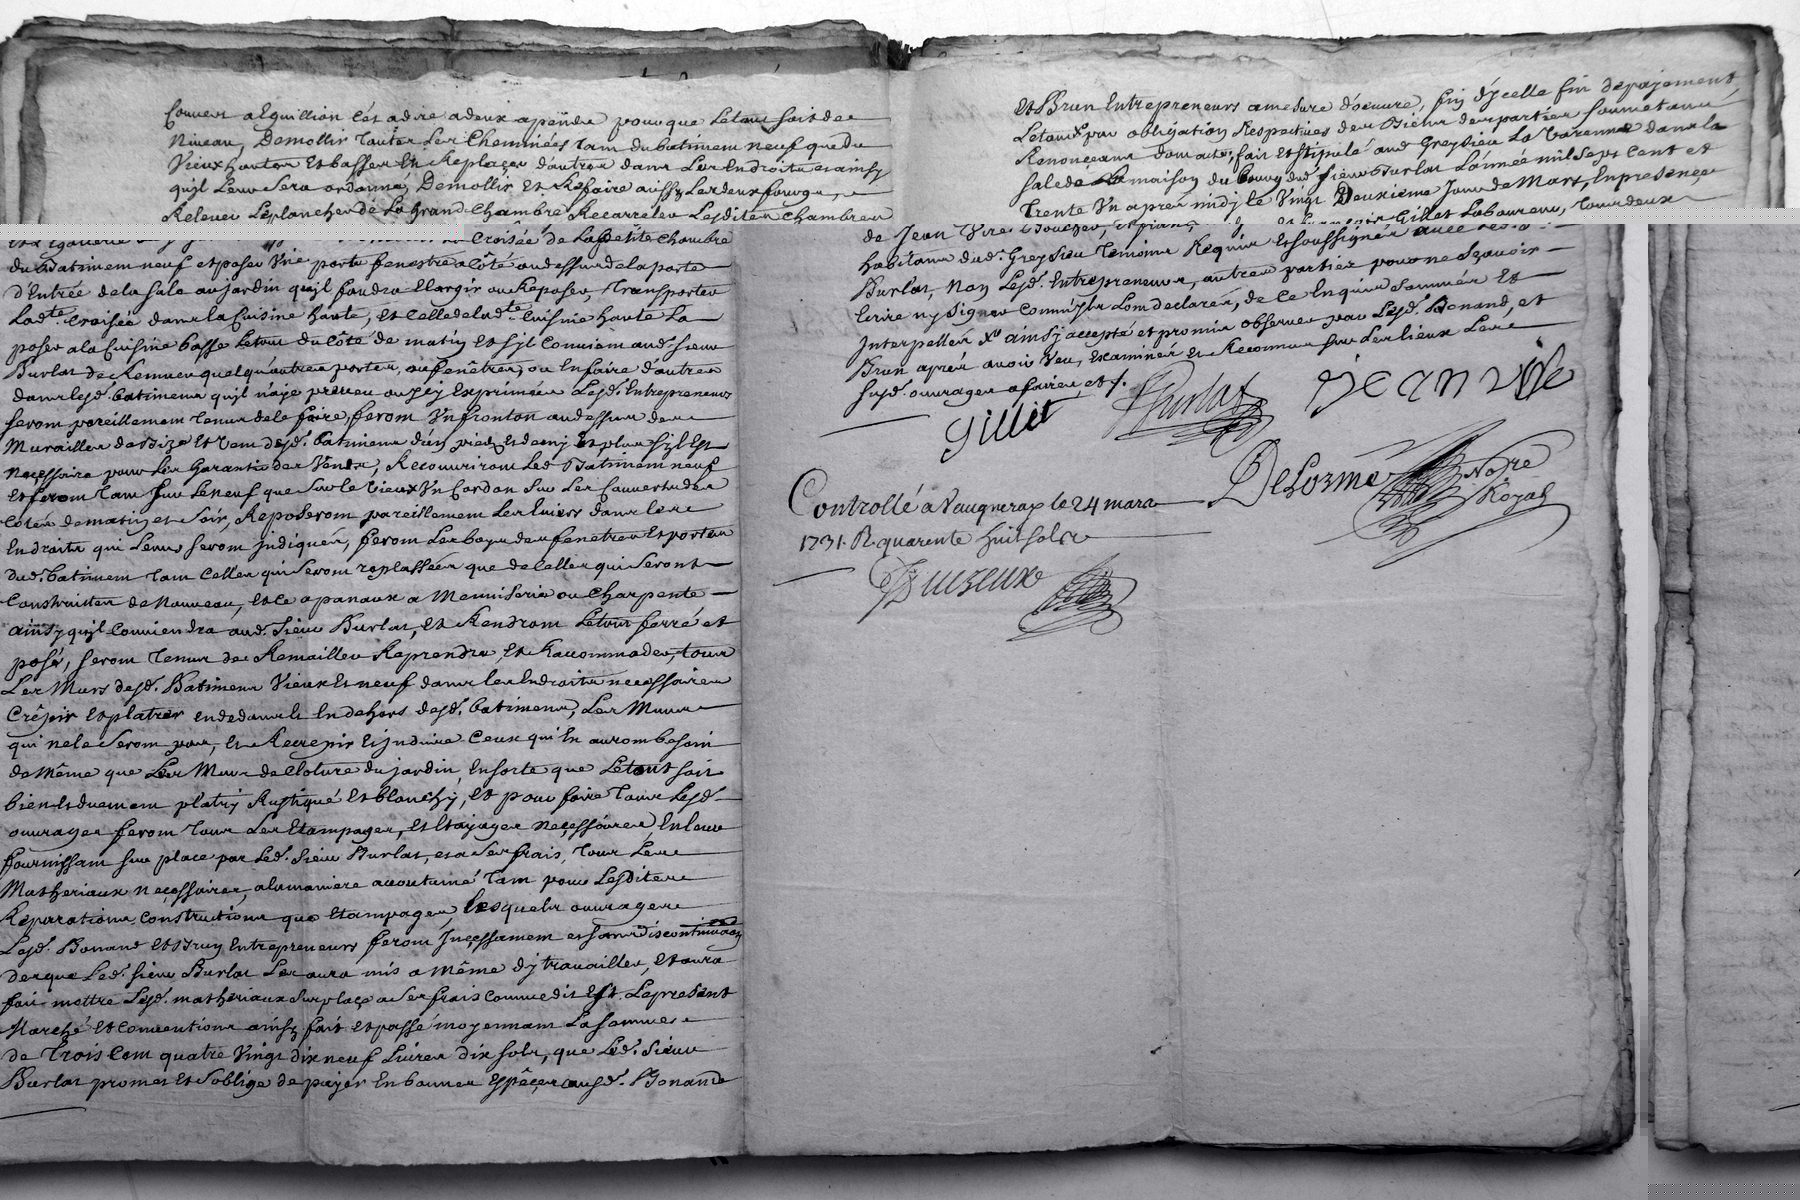 Couvert a Equillion c'est adire adeux apendu pour que Letout soit de
Niveau, Demollir Toutes Les Cheminées Tant du batiment neuf que du
Vieux hautes Et basses En Replacer d'autres dans Les Endroits et ainsy
quil Leur Sera ordonné, Demollir Et Refaire aussy Les deux fourgs,
Relever Leplancher de La grand Chambre Recarreler Lesdites Chambres
Croisée de La petite Chambre
du Batiment neuf et poser Une porte fenestre a côté audessus de la porte
d'Entrée de la Sale au jardin quil faudra Elargir ou Reposer, Transporter
Ladte. Croisée dans la Cuisine haute, et Celle de Ladte. Cuisine haute La
poser a la Cuisine basse Letout du Côté de matin Et sil Convient aud. sieur
Burlat de Remuer quelqu'autres portes, ou fenêtres, ou En faire d'autres
dans Lesd. batiments quil n'aye preveu ou Icy Exprimées Lesd. Entrepreneurs
seront pareillement Tenus de le faire, feront Un fronton au dessus des
Murailles de bize et Vent desd. batiments d'un pied Et demy Et plus sil Est
Necessaire pour Les Garantir des Vents, Recouvriront Led. Batiment neuf
Et feront Tant sur Le neuf que Sur le Vieux Un Cordon Sur Les Couverts des
Côtés de matin et Soir, Reposeront pareillement Les luiers dans les
Endroits qui Leurs seront indiqués, feront Les boys des fenetres Et portes
dud. batiment Tant Celles qui Seront replassées que de Celles qui Seront
Construittes de Nouveau, et Ce a panaux a Menuiserie ou Charpente
ainsy quil Conviendra aud. Sieur Burlat, Et Rendront Letout ferré et
posé, seront Tenus de Remailler Reprendre, Et Raccommoder, tous
Les Murs desd. Batiments Vieux Et neuf dans les Endroits necessaires
Crêpir Et platrer en dedans Et En dehors desd. batiments, Les Murs
qui ne le Seront pas, Et Recrepir Et induire Ceux qui En auront besoin
de Même que Les Murs de Cloture du jardin, En sorte que Letout soit
bien Et duement platry Rustiqué Et blanchy, Et pour faire Tous Lesd.
ouvrages feront Tous Les Etampages, Et Etayages necessaires, En leur
fournissant sur place par Led. Sieur Burlat, et a Ses frais, Tous Les
Matheriaux necessaires, a la maniere accoutumé Tant pour Lesdites
Réparations Constructions que Etampages, Lesquels ouvrages
Lesd. Bonand Et Brun Entrepreneurs feront Incessament et sans discontinuation
des que Led. Sieur Burlat Les aura mis a Même d'y travailler, Et aura
fait mettre Lesd. matheriaux Sur place a Ses frais comme dit Est. Le present
Marché Et Conventions ainsy fait Et passé moyennant La somme
de Trois Cent quatre Vingt dix neuf Livres dix Sols, que Led. Sieur
Burlat promet Et S'oblige de payer En bonnes Espèces ausd. Bonand
Et Brun Entrepreneurs a mesure d'oeuvre, fin d'icelle fin de payement,
Letout par obligation Respectives des Biens des parties soumetans
Renonçeans dont acte, fait Et Stipulé aud Greysieu La Varenne dans la
sale de La maison du bourg dud. Sieur Burlat L'année mil Sept Cent et
Trente Un apres midy le Vingt Deuxieme Jour de Mars, En presence
de Jean Vire Gillet Laboureur, Tous deux
habitans dud. Greysieu Temoins Requis Et soussignés avec led. S.
Burlat, Non Lesd. Entrepreneurs, autres parties pour ne Scavoir
Ecrire ny Signer Comm'ils L'ont declarés, de Ce Enquis Sommés Et
Interpellés ainsy accepté et promis observer par Lesd. Bonand, et
Brun après avoir Veu, Examinés Et Reconnus Sur Les lieux Les
Susd. ouvrages a faire et /.
Gillit Burlat JEAN VIRE
Delorme Nore
Royal
Controllé a Vaugneray le 24 mars
1731. R quarente huit sols
Duizeux